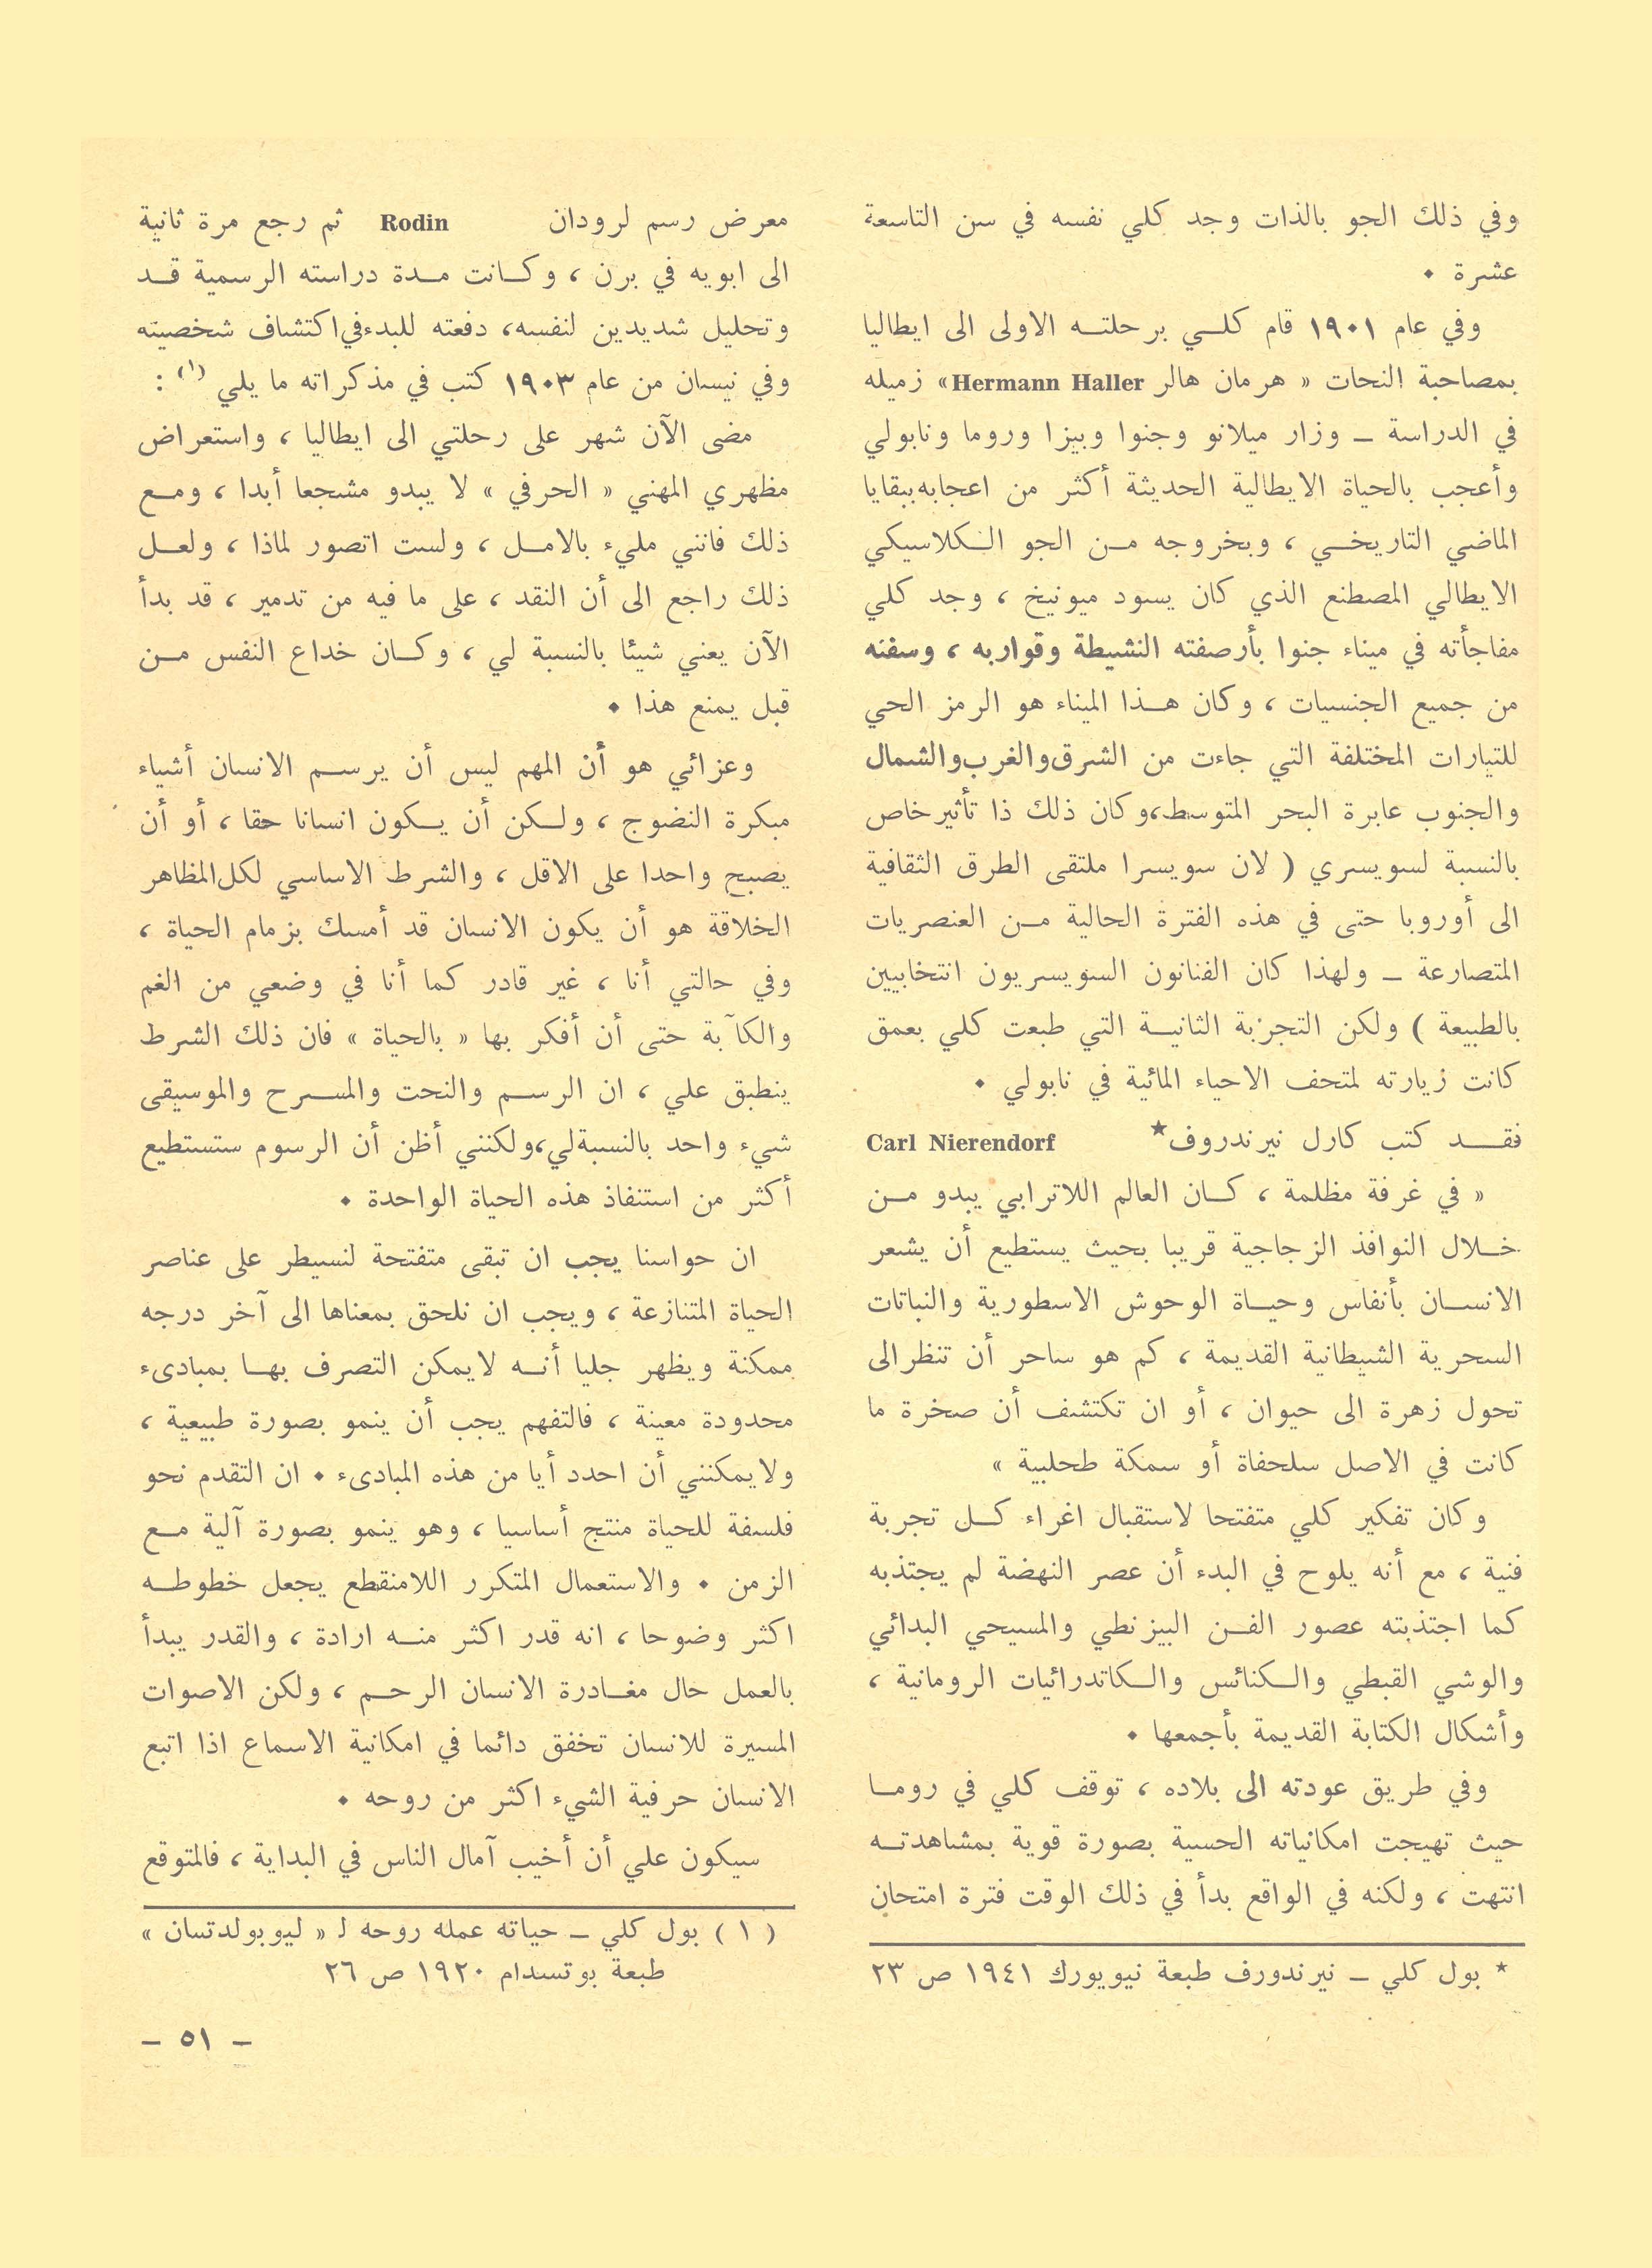 وفي ذلك الجو بالذات وجد كلي نفسه في سن التاسعة
عشرة ٠
وفي عام ١٩٠١ قام كلـــي برحلتـــه الاولى الى ايطاليا
بمصاحبة النحات « هرمان هالر Hermann Haller» زميله
في الدراسة ــ وزار ميلانو وجنوا وبيزا وروما ونابولي
وأعجب بالحياة الايطالية الحديثة أكثر من اعجابه ببقايا
الماضي التاريخـــي ، وبخروجه مــن الجو الــكلاسيكي
الايطالي المصطنع الذي كان يسود ميونيخ ، وجد كلي
مفاجأته في ميناء جنوا بأرصفته النشيطة وقواربه ، وسفنه
من جميع الجنسيات ، وكان هــذا الميناء هو الرمز الحي
للتيارات المختلفة التي جاءت من الشرق والغرب والشمال
والجنوب عابرة البحر المتوسط، وكان ذلك ذا تأثير خاص
بالنسبة لسويسري ( لان سويسرا ملتقى الطرق الثقافية
الى أوروبا حتى في هذه الفترة الحالية مــن العنصريات
المتصارعة ــ ولهذا كان الفنانون السويسريون انتخابيين
بالطبيعة ) ولكن التجربة الثانيـــة التي طبعت كلي بعمق
كانت زيارته لمتحف الاحياء المائية في نابولي ٠
فقـــد كتب كارل نيرندروف★ Carl Nierendorf
« في غرفة مظلمة ، كــان العالم اللاترابي يبدو مــن
خــلال النوافذ الزجاجية قريبا بحيث يستطيع أن يشعر
الانســان بأنفاس وحيــاة الوحوش الاسطورية والنباتات
السحرية الشيطانية القديمة ، كم هو ساحر أن تنظر الى
تحول زهرة الى حيوان ، أو ان تكتشف أن صخرة ما
كانت في الاصل سلحفاة أو سمكة طحلبية »
وكان تفكير كلي متفتحا لاستقبال اغراء كــل تجربة
فنية ، مع أنه يلوح في البدء أن عصر النهضة لم يجتذبه
كما اجتذبته عصور الفــن البيزنطي والمسيحي البدائي
والوشي القبطي والــكنائس والــكاتدرائيات الرومانية ،
وأشكال الكتابة القديمة بأجمعها ٠
وفي طريق عودته الى بلاده ، توقف كلي في رومــا
حيث تهيجت امكانياته الحسية بصورة قوية بمشاهدتــه
انتهت ، ولكنه في الواقع بدأ في ذلك الوقت فترة امتحان
★ بول كلي ــ نيرندورف طبعة نيويورك ١٩٤١ ص ٢٣
معرض رسم لرودان Rodin ثم رجع مرة ثانية
الى ابويه في برن ، وكــانت مــدة دراسته الرسمية قــد
وتحليل شديدين لنفسه، دفعته للبدء في اكتشاف شخصيته
وفي نيسان من عام ١٩٠٣ كتب في مذكراته ما يلي (١) :
مضى الآن شهر على رحلتي الى ايطاليا ، واستعراض
مظهري المهني « الحرفي » لا يبدو مشجعا أبدا ، ومــع
ذلك فانني مليء بالامــل ، ولست اتصور لماذا ، ولعــل
ذلك راجع الى أن النقد ، على ما فيه من تدمير ، قد بدأ
الآن يعني شيئا بالنسبة لي ، وكــان خداع النفس مــن
قبل يمنع هذا ٠
وعزائي هو أن المهم ليس أن يرســم الانسان أشياء
مبكرة النضوج ، ولــكن أن يــكون انسانا حقا ، أو أن
يصبح واحدا على الاقل ، والشرط الاساسي لكل المظاهر
الخلاقة هو أن يكون الانسان قد أمسك بزمام الحياة ،
وفي حالتي أنا ، غير قادر كما أنا في وضعي من الغم
والكآبة حتى أن أفكر بها « بالحياة » فان ذلك الشرط
ينطبق علي ، ان الرســم والنحت والمســرح والموسيقى
شيء واحد بالنسبة لي، ولكنني أظن أن الرسوم ستستطيع
أكثر من استنفاذ هذه الحياة الواحدة ٠
ان حواسنا يجب ان تبقى متفتحة لنسيطر على عناصر
الحياة المتنازعة ، ويجب ان نلحق بمعناها الى آخر درجه
ممكنة ويظهر جليا أنــه لا يمكن التصرف بهــا بمبادىء
محدودة معينة ، فالتفهم يجب أن ينمو بصورة طبيعية ،
ولا يمكنني أن احدد أيا من هذه المبادىء ٠ ان التقدم نحو
فلسفة للحياة منتج أساسيا ، وهو ينمو بصورة آلية مــع
الزمن ٠ والاستعمال المتكرر اللامنقطع يجعل خطوطــه
اكثر وضوحا ، انه قدر اكثر منــه ارادة ، والقدر يبدأ
بالعمل حال مغــادرة الانسان الرحــم ، ولكن الاصوات
المسيرة للانسان تخفق دائما في امكانية الاسماع اذا اتبع
الانسان حرفية الشيء اكثر من روحه ٠
سيكون علي أن أخيب آمال الناس في البداية ، فالمتوقع
( ١ ) بول كلي ــ حياته عمله روحه لـ « ليوبولدتسان »
طبعة بوتسدام ١٩٢٠ ص ٢٦
ــ ٥١ ــ